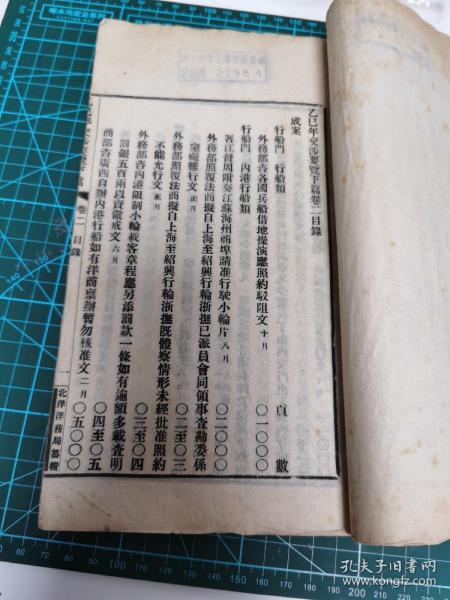 乙巳年交涉要覽下篇卷二目錄
成案
行船門 行船類 頁數
外務部咨各國兵船借地操演應照約駁阻文 十月 〇一〇〇〇
行船門 內港行船類
署江督周附奏江蘇海州商埠請准行駛小輪片 八月 〇二〇〇〇
外務部照覆法商擬自上海至紹興行輪浙撫已派員會同領事查勘委係
窒礙難行文 正月 〇二至〇三
外務部照覆法商擬自上海至紹興行輪浙撫既體察情形未經批准照約
不能允行文 正月 〇三至〇四
外務部咨內港限制小輪載客章程應另添罰款一條如有逾額多載查明
罰銀五百兩以資儆戒文 六月 〇四至〇五
商部咨廣西自辦內港行船如有洋商稟辦暫勿核准文 二月 〇五〇〇〇
卷二 目錄
一
北洋洋務局纂輯
27984
孔夫子旧书网